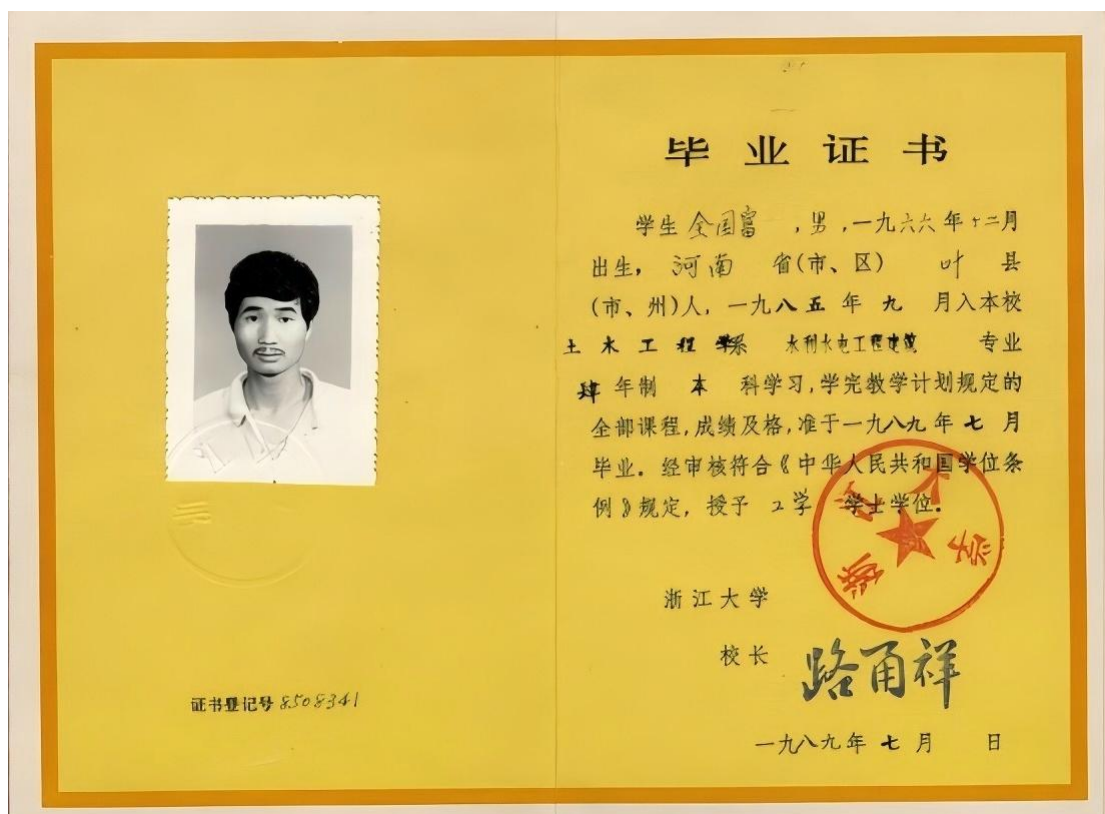 证书登记号 8508341
毕业证书
学生 全国富 ,男,一九六六年十二月
出生, 河南 省(市、区) 叶 县
(市、州)人, 一九八五年 九 月入本校
土木工程学系 水利水电工程建筑 专业
肆年制 本 科学习,学完教学计划规定的
全部课程,成绩及格,准于一九八九年七月
毕业. 经审核符合《中华人民共和国学位条
例》规定, 授予 工学 学士学位.
浙江大学
浙江大学
校长 路甬祥
一九八九年七月 日